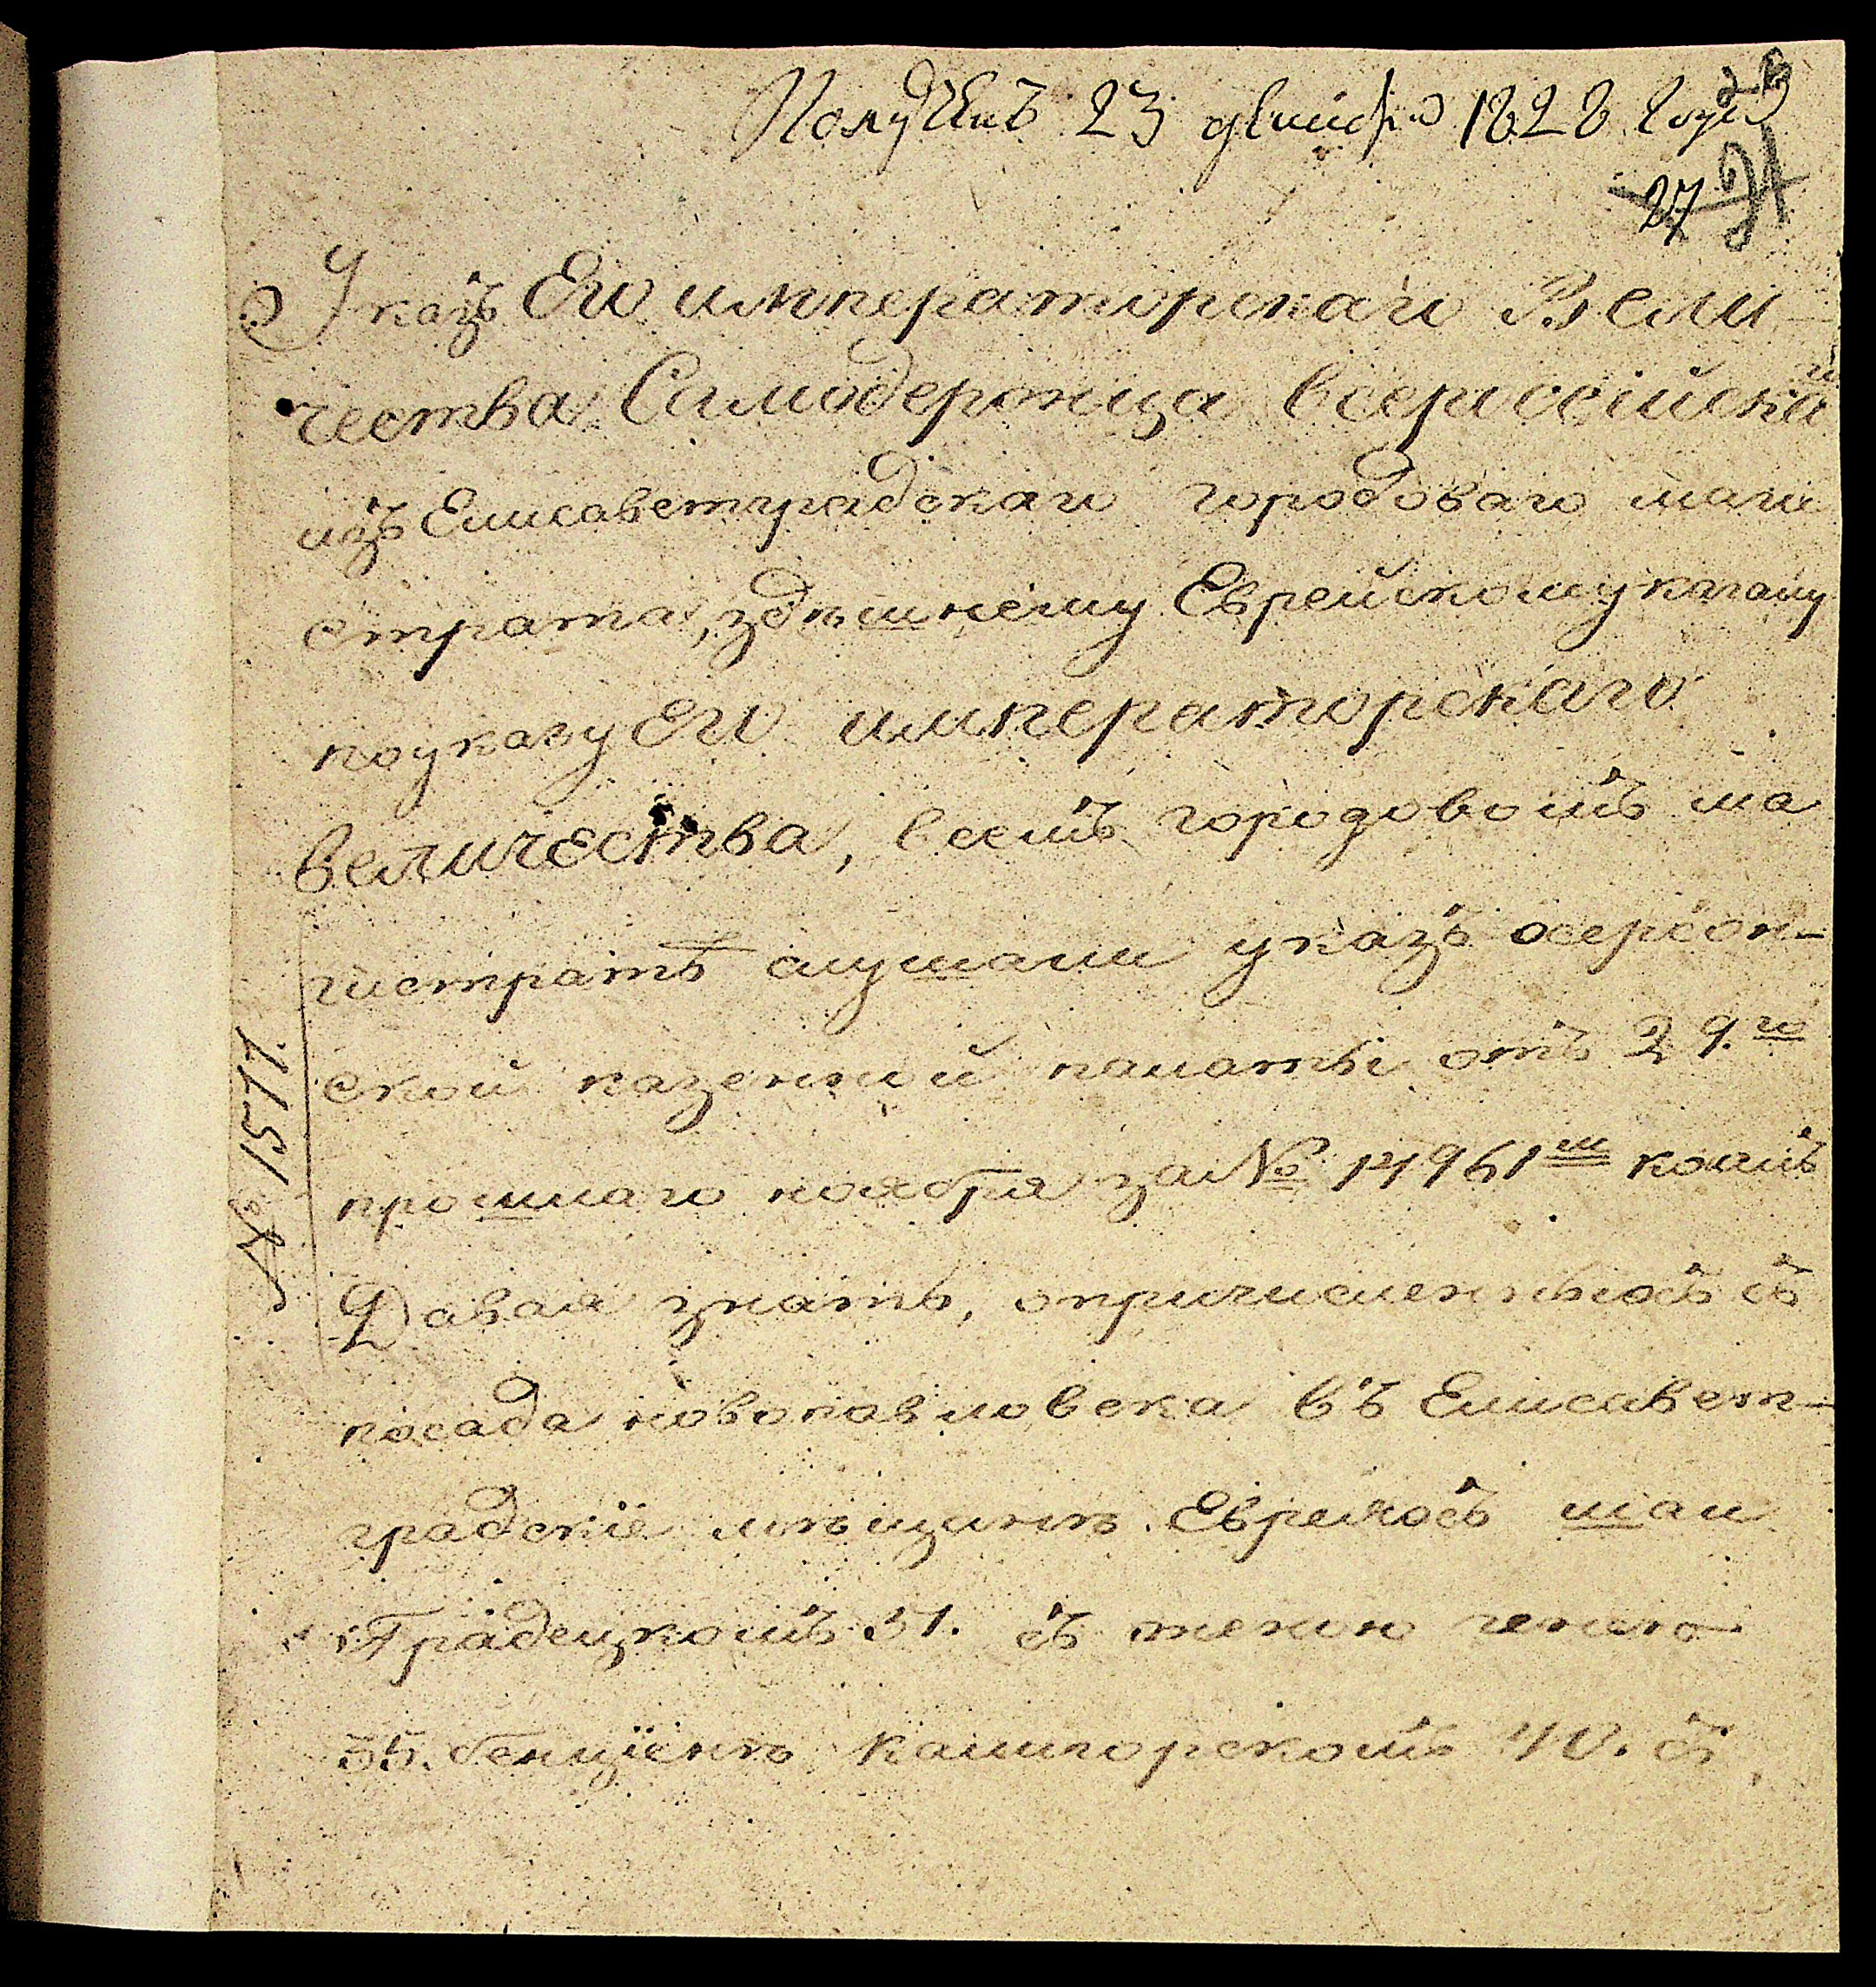 Полученъ 23 декабря 1828 года
27
Указъ Его императорскаго Вели-
чества Самодержца всероссійскаго
изъ Елисаветградскаго городоваго маги
страта, здѣшнему Еврейскому кагалу
по указу Его императорскаго
величества, в семъ городовомъ ма
гистратѣ слушали указъ херсон-
ской казенной палаты отъ 29.го
прошлаго ноября за № 14961м коимъ
Давая знать, о причисленныхъ съ
посада новопавловска въ Елисавет-
градскіе мѣщане Евреяхъ
Градецкомъ 31. съ женою
35. Бенціенѣ Кангорскомъ 40. съ
№ 1577.